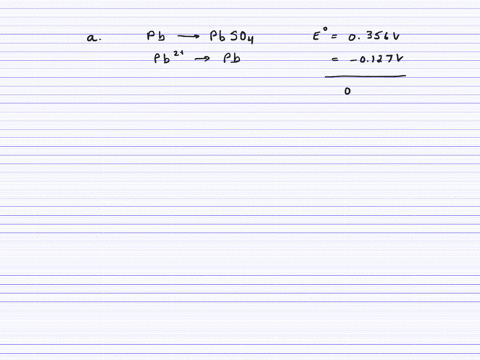 a. Pb → PbSO4 E° = 0.356V
Pb2+ → Pb = -0.127V
0